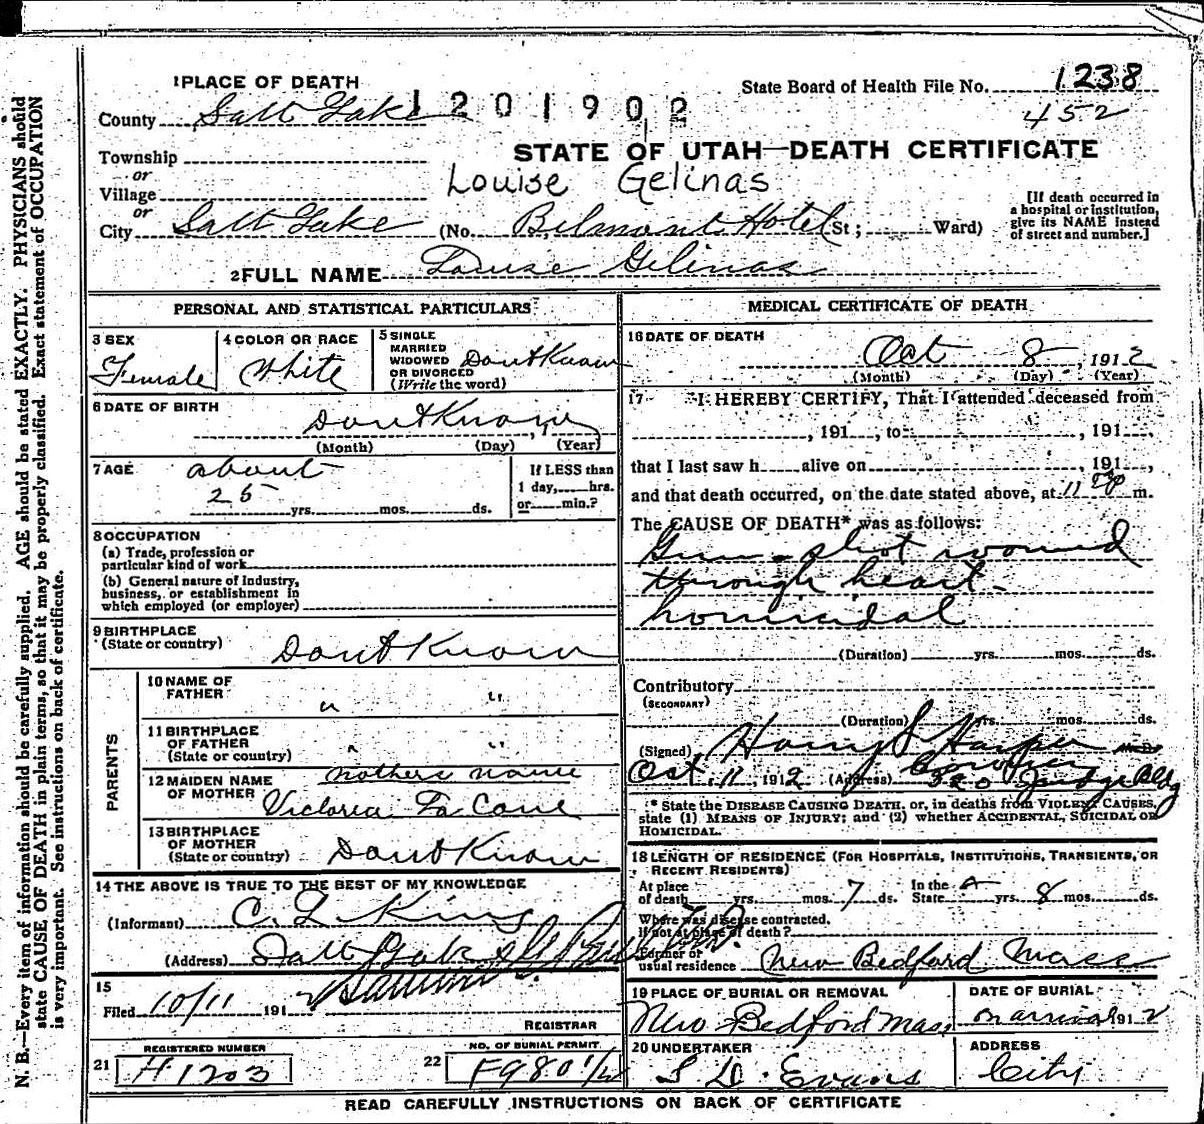 1 PLACE OF DEATH
State Board of Health File No. 1238
County Salt Lake
1201902
452
STATE OF UTAH—DEATH CERTIFICATE
Township
or
Village
Louise Gelinas
or
City Salt Lake (No. Belmont Hotel St; Ward)
[If death occurred in a hospital or institution, give its NAME instead of street and number.]
2 FULL NAME Louise Gelinas
PERSONAL AND STATISTICAL PARTICULARS
3 SEX
Female
4 COLOR OR RACE
White
5 SINGLE
MARRIED
WIDOWED
OR DIVORCED
(Write the word)
Dont Know
6 DATE OF BIRTH
Dont Know
(Month) (Day) (Year)
7 AGE
about
25 yrs. mos. ds.
If LESS than
1 day, hrs.
or min.?
8 OCCUPATION
(a) Trade, profession or
particular kind of work
(b) General nature of Industry,
business, or establishment in
which employed (or employer)
9 BIRTHPLACE
(State or country)
Dont Know
PARENTS
10 NAME OF
FATHER
" "
11 BIRTHPLACE
OF FATHER
(State or country)
" "
12 MAIDEN NAME
OF MOTHER
mothers name
Victoria
13 BIRTHPLACE
OF MOTHER
(State or country)
Dont Know
14 THE ABOVE IS TRUE TO THE BEST OF MY KNOWLEDGE
(Informant) C. L. King
(Address) Salt Lake
15
Filed 10/11 191
REGISTRAR
21
REGISTERED NUMBER
H1203
22
NO. OF BURIAL PERMIT
F980
MEDICAL CERTIFICATE OF DEATH
16 DATE OF DEATH
Oct 8, 1912
(Month) (Day) (Year)
17 I HEREBY CERTIFY, That I attended deceased from
, 191 , to , 191 ,
that I last saw h alive on , 191 ,
and that death occurred, on the date stated above, at 11 m.
The CAUSE OF DEATH* was as follows:
Gun-shot wound
through heart-
homicidal
(Duration) yrs. mos. ds.
Contributory
(SECONDARY)
(Duration) yrs. mos. ds.
(Signed) Harry S Harper
Coroner
Oct. 11, 1912 (Address) 320 Judge Bldg
* State the DISEASE CAUSING DEATH, or, in deaths from VIOLENT CAUSES,
state (1) MEANS OF INJURY; and (2) whether ACCIDENTAL, SUICIDAL OR
HOMICIDAL.
18 LENGTH OF RESIDENCE (FOR HOSPITALS, INSTITUTIONS, TRANSIENTS, OR
RECENT RESIDENTS)
At place
of death yrs. mos. 7 ds. In the
State yrs. 8 mos. ds.
Where was disease contracted.
If not at place of death?
Former or
usual residence New Bedford Mass
19 PLACE OF BURIAL OR REMOVAL
New Bedford Mass
DATE OF BURIAL
on arrival 1912
20 UNDERTAKER
S. D. Evans
ADDRESS
City
READ CAREFULLY INSTRUCTIONS ON BACK OF CERTIFICATE
N. B.—Every item of information should be carefully supplied. AGE should be stated EXACTLY. PHYSICIANS should
state CAUSE OF DEATH in plain terms, so that it may be properly classified. Exact statement of OCCUPATION
is very important. See instructions on back of certificate.